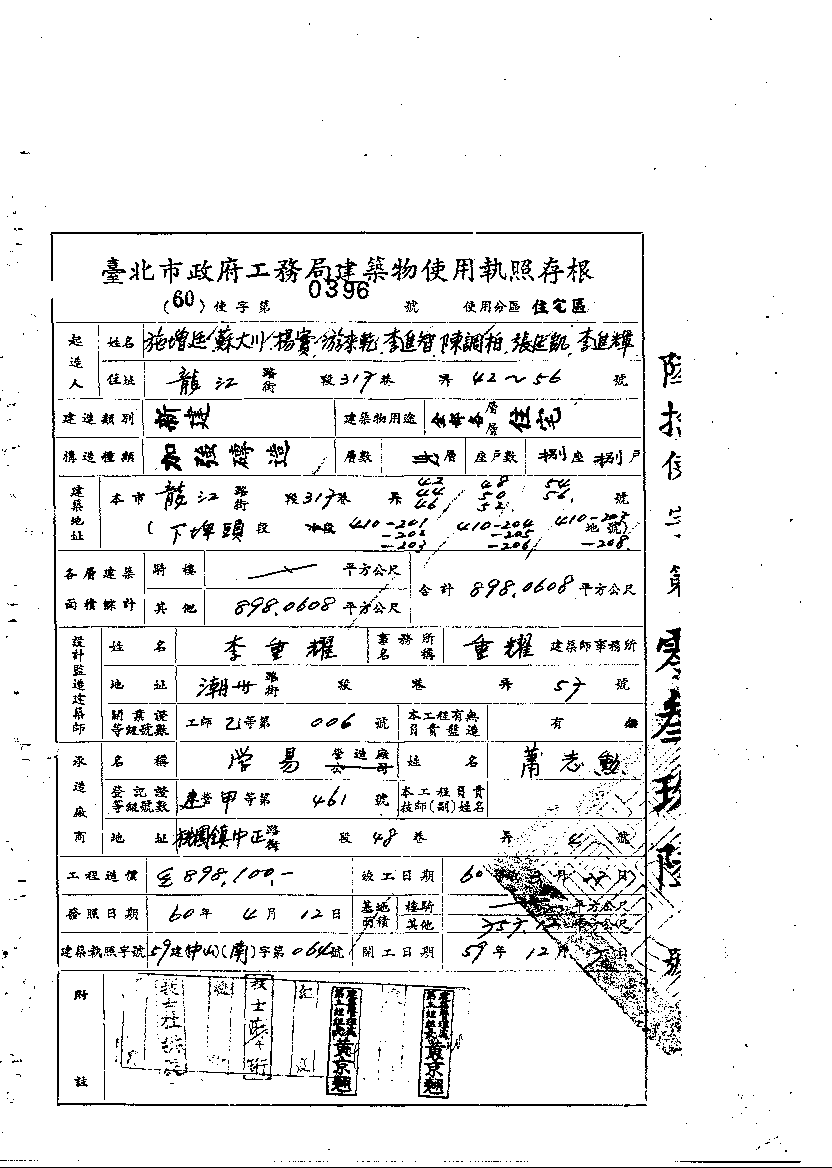 臺北市政府工務局建築物使用執照存根
(60)使字第 0396 號 使用分區 住宅區
起造人 姓名 施增廷 蘇大川 楊寶 游來乾 李進智 陳調柏 張延凱 李進輝
住址 龍江 路街 段317巷 弄42~56 號
建造類別 新建 建築物用途 全部各層層住宅
構造種類 加強磚造 層數 層 座戶數 捌座 捌戶
建築地址 本市 龍江 路街 段317巷 弄 42 44 46 48 50 52 54 56 號
(下埤頭 段 小段 410-201 -202 -203 410-204 -205 -206 410-207 -208 地號)
各層建築面積綜計 騎樓 平方公尺 合計 898.0608 平方公尺
其他 898.0608 平方公尺
設計監造建築師 姓名 李重耀 事務所名稱 重耀 建築師事務所
地址 潮州 路街 段 巷 弄 57 號
開業證等級號數 工師 乙等第 006 號 本工程有無負責監造 有
承造廠商 名稱 營造廠公司 姓名 蕭志勳
登記證等級號數 建營甲等第 461 號 本工程負責技師(副)姓名
地址 桃園鎮中正路街 段 48 巷 弄 4 號
工程造價 898,100.- 竣工日期 60
發照日期 60年 4月 12日 基地面積 騎樓 平方公尺
其他 平方公尺
建築執照字號 59建(中山)(南)字第 064號 開工日期 59年 12月 日
附註
黃京翹
黃京翹
陸拾使字第零叁玖陸號